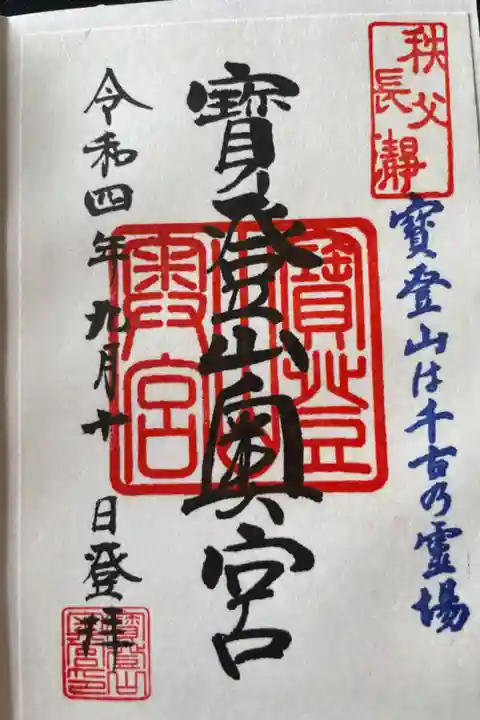 秩父
長瀞
寶登山は千古の霊場
寶登山奥宮
寶登山
奥宮
令和四年九月十日登拝
寶登山
奥宮印